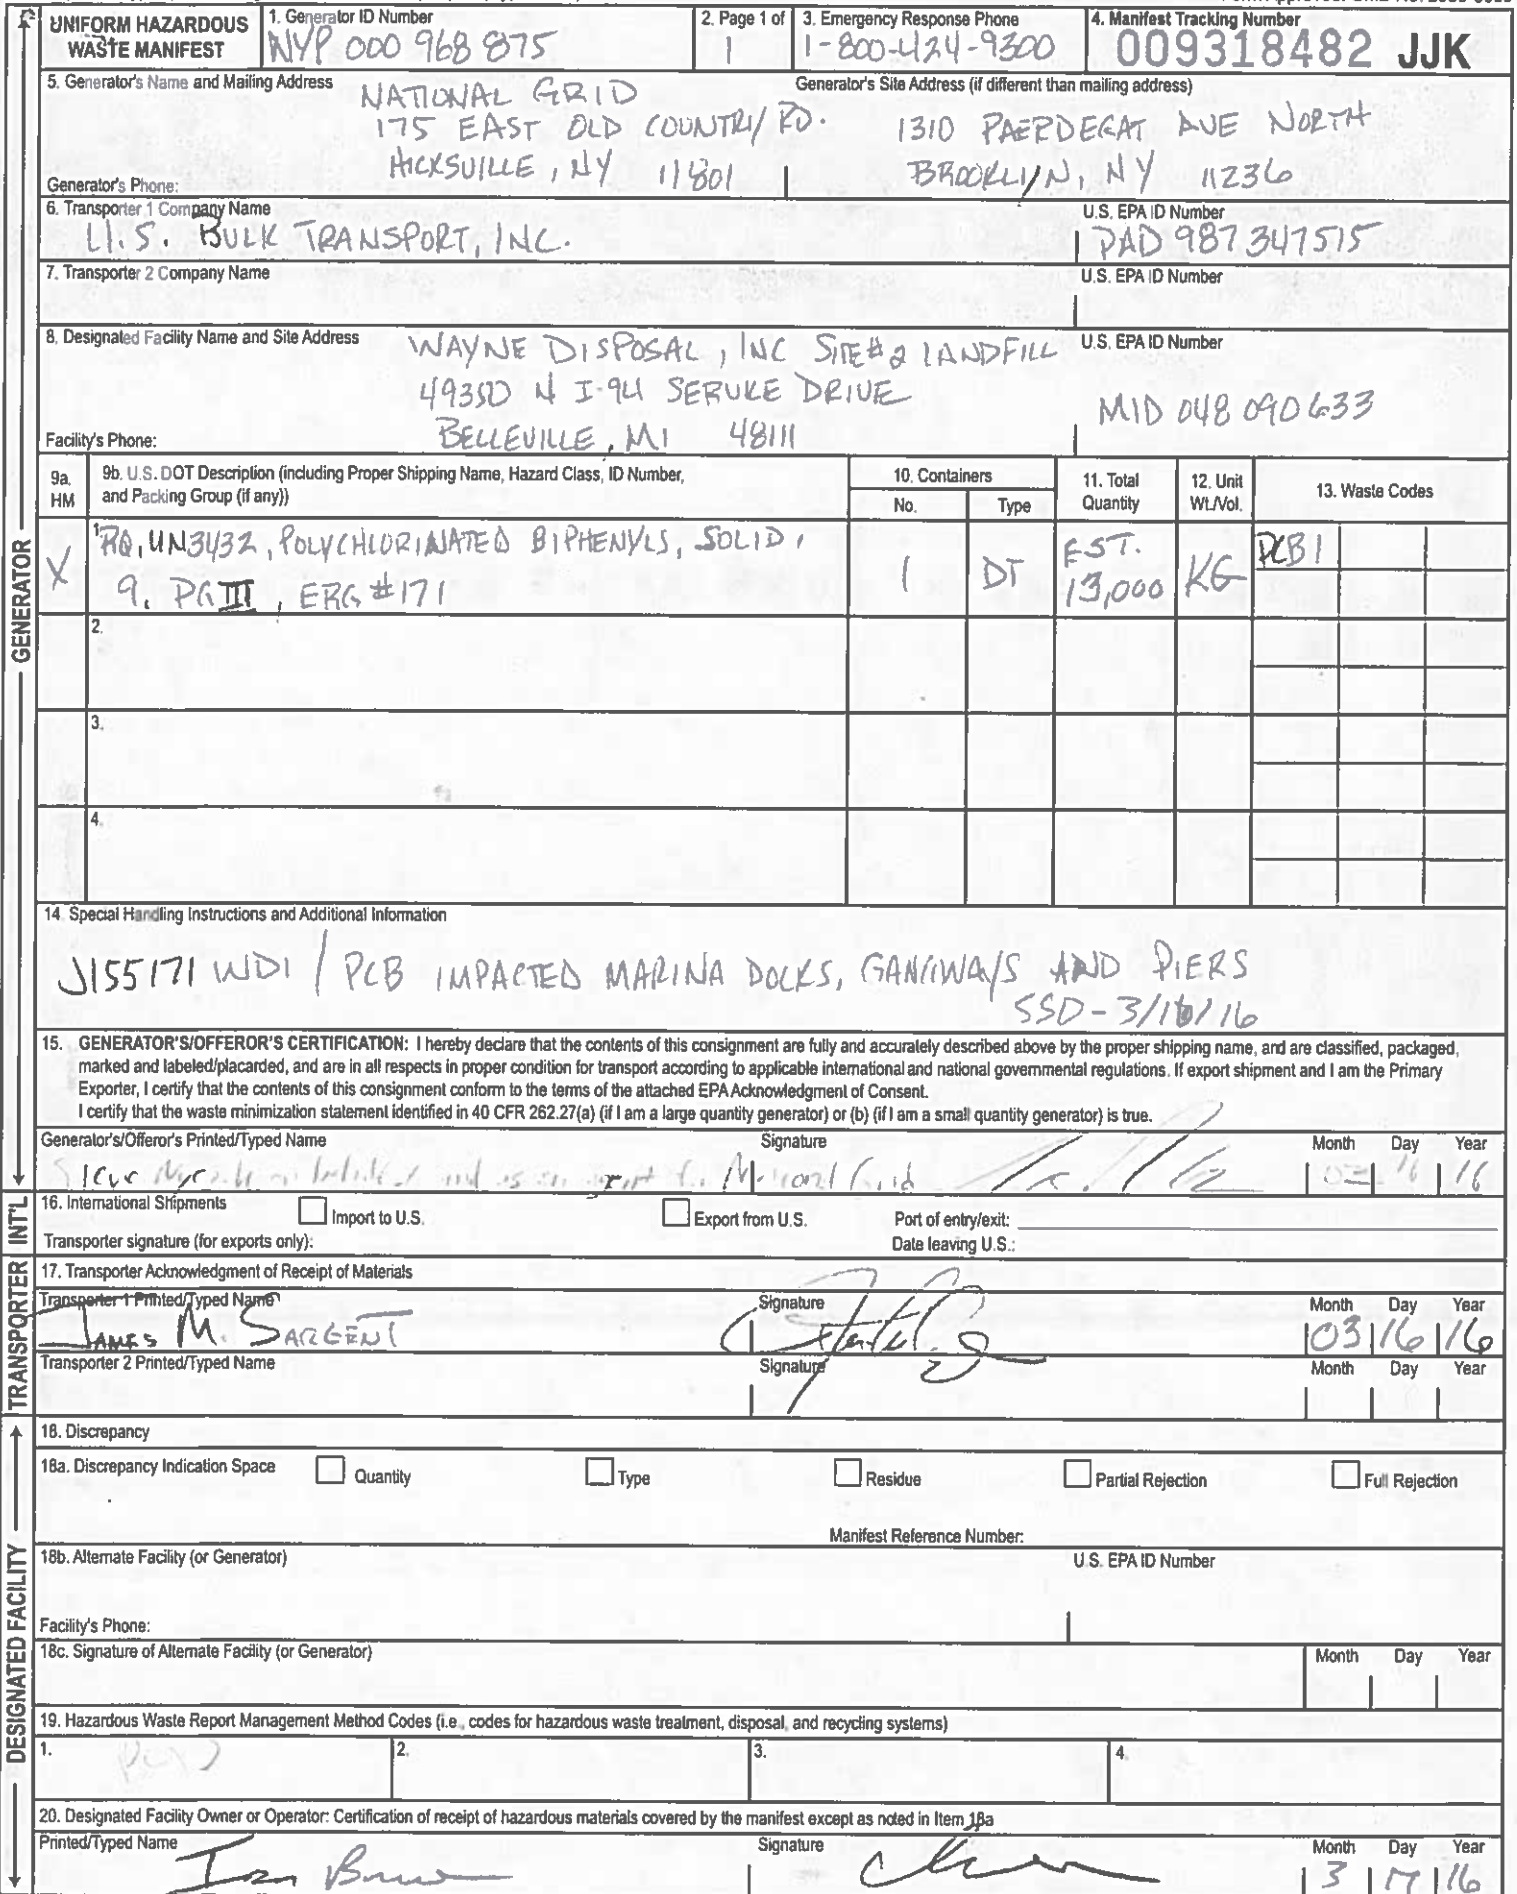 UNIFORM HAZARDOUS WASTE MANIFEST
1. Generator ID Number
NYP 000 968 875
2. Page 1 of
1
3. Emergency Response Phone
1-800-424-9300
4. Manifest Tracking Number
009318482 JJK
5. Generator's Name and Mailing Address
NATIONAL GRID
175 EAST OLD COUNTRY RD.
HICKSVILLE, NY 11801
Generator's Site Address (if different than mailing address)
1310 PAERDEGAT AVE NORTH
BROOKLYN, NY 11236
Generator's Phone:
6. Transporter 1 Company Name
U.S. BULK TRANSPORT, INC.
U.S. EPA ID Number
PAD 987347515
7. Transporter 2 Company Name
U.S. EPA ID Number
8. Designated Facility Name and Site Address
WAYNE DISPOSAL, INC SITE#2 LANDFILL
49350 N I-94 SERVICE DRIVE
BELLEVILLE, MI 48111
U.S. EPA ID Number
MID 048 090 633
Facility's Phone:
9a. HM
9b. U.S. DOT Description (including Proper Shipping Name, Hazard Class, ID Number, and Packing Group (if any))
10. Containers
No.
Type
11. Total Quantity
12. Unit Wt./Vol.
13. Waste Codes
X
1. RQ, UN3432, POLYCHLORINATED BIPHENYLS, SOLID,
9, PG III, ERG #171
1
DT
EST. 13,000
KG
PCB1
2.
3.
4.
14. Special Handling Instructions and Additional Information
J155171 WDI / PCB IMPACTED MARINA DOCKS, GANGWAYS AND PIERS
SSD - 3/16/16
15. GENERATOR'S/OFFEROR'S CERTIFICATION: I hereby declare that the contents of this consignment are fully and accurately described above by the proper shipping name, and are classified, packaged,
marked and labeled/placarded, and are in all respects in proper condition for transport according to applicable international and national governmental regulations. If export shipment and I am the Primary
Exporter, I certify that the contents of this consignment conform to the terms of the attached EPA Acknowledgment of Consent.
I certify that the waste minimization statement identified in 40 CFR 262.27(a) (if I am a large quantity generator) or (b) (if I am a small quantity generator) is true.
Generator's/Offeror's Printed/Typed Name
Signature
Month Day Year
03 16 16
16. International Shipments
Import to U.S.
Export from U.S.
Port of entry/exit:
Transporter signature (for exports only):
Date leaving U.S.:
17. Transporter Acknowledgment of Receipt of Materials
Transporter 1 Printed/Typed Name
Signature
Month Day Year
JAMES M. SARGENT
03 16 16
Transporter 2 Printed/Typed Name
Signature
Month Day Year
18. Discrepancy
18a. Discrepancy Indication Space
Quantity
Type
Residue
Partial Rejection
Full Rejection
Manifest Reference Number:
18b. Alternate Facility (or Generator)
U.S. EPA ID Number
Facility's Phone:
18c. Signature of Alternate Facility (or Generator)
Month Day Year
19. Hazardous Waste Report Management Method Codes (i.e., codes for hazardous waste treatment, disposal, and recycling systems)
1.
2.
3.
4.
20. Designated Facility Owner or Operator: Certification of receipt of hazardous materials covered by the manifest except as noted in Item 18a
Printed/Typed Name
Signature
Month Day Year
3 17 16
GENERATOR
INT'L
TRANSPORTER
DESIGNATED FACILITY